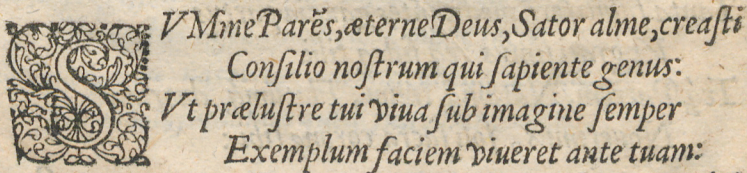 SVMme Parẽs, æterne Deus, Sator alme, creaſti
Conſilio noſtrum qui ſapiente genus:
Vt præluſtre tui viua ſub imagine ſemper
Exemplum faciem viueret ante tuam: